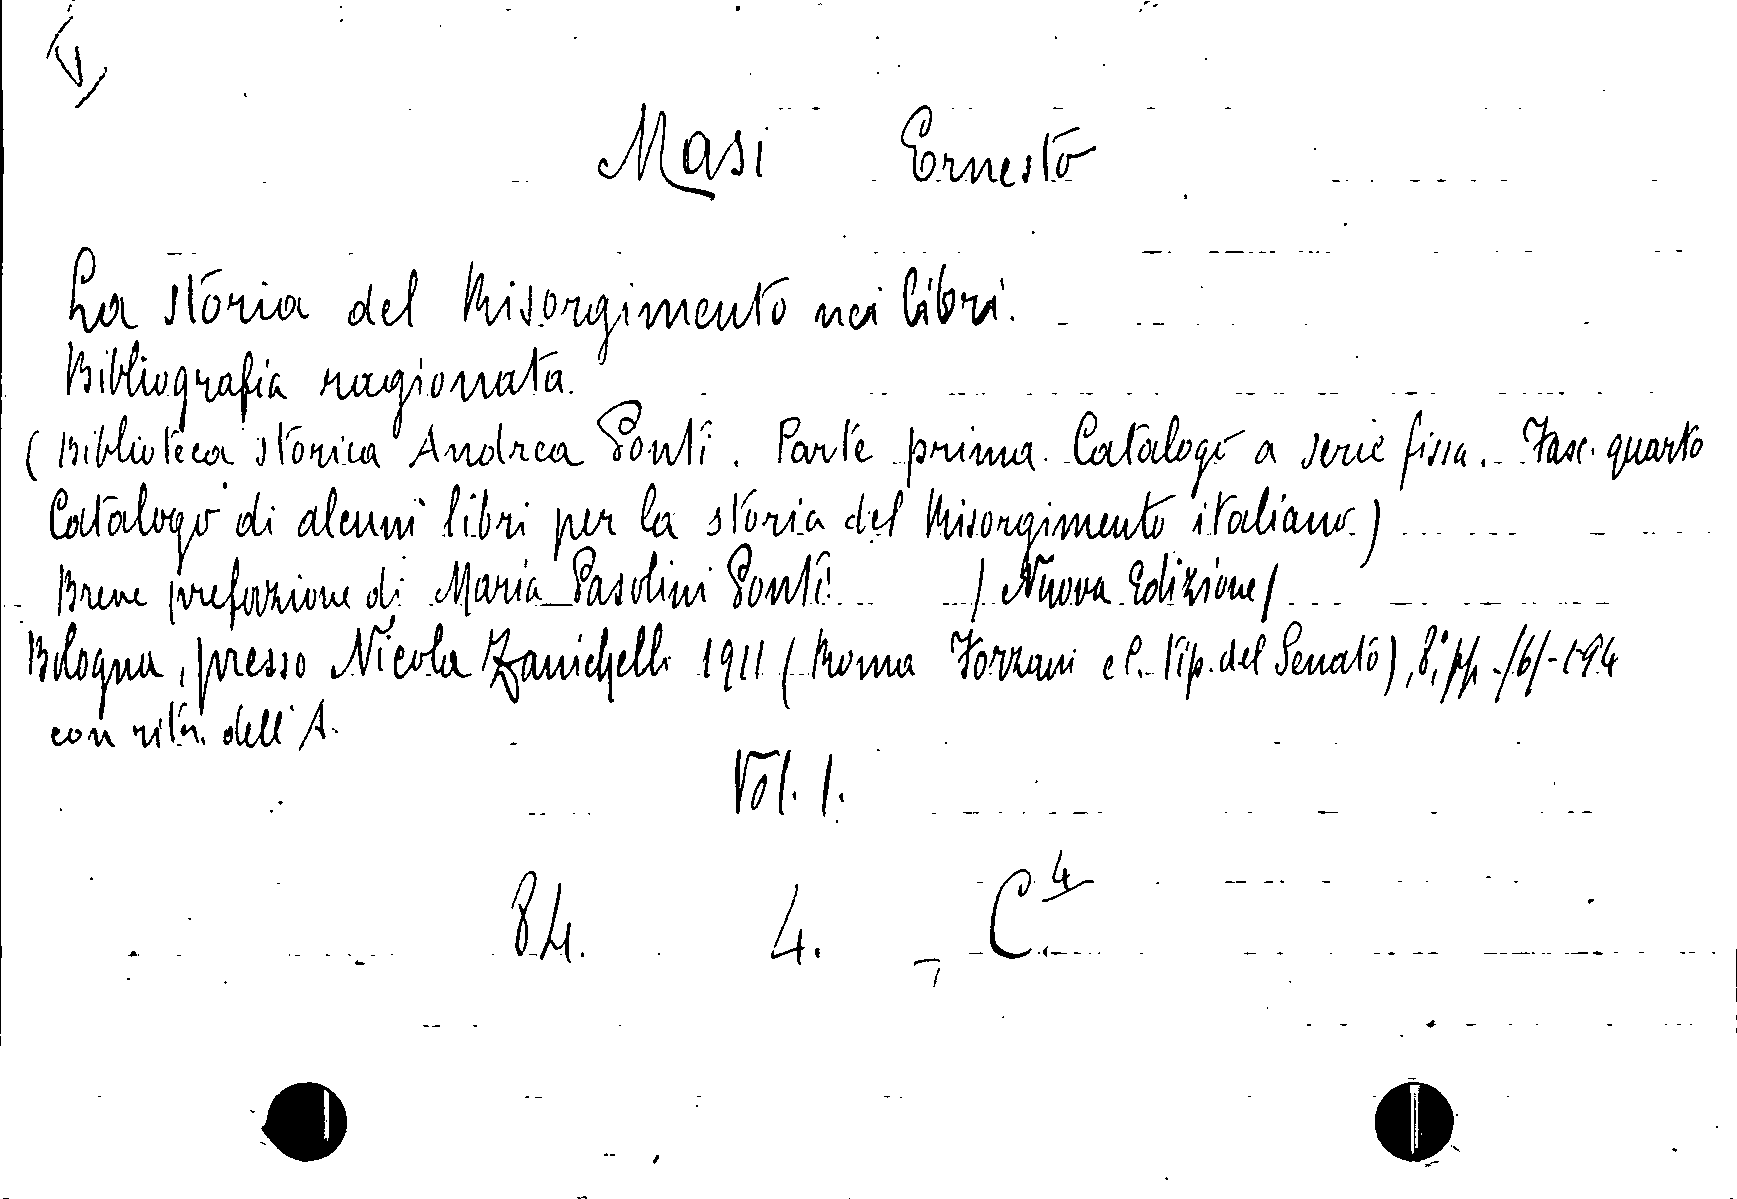 Masi Ernesto
La storia del Risorgimento nei libri.
Bibliografia ragionata.
(Biblioteca storica Andrea Ponti. Parte prima. Catalogi a serie fissa. Fasc. quarto
Catalogo di alcuni libri per la storia del Risorgimento italiano.)
Breve prefazione di Maria Pasolini Ponti /Nuova Edizione/
Bologna, presso Nicola Zanichelli 1911 (Roma Forzani e C. Tip. del Senato), 8°, pp. /6/-194
con ritr. dell'A.
Vol. 1.
84. 4. C⁴.